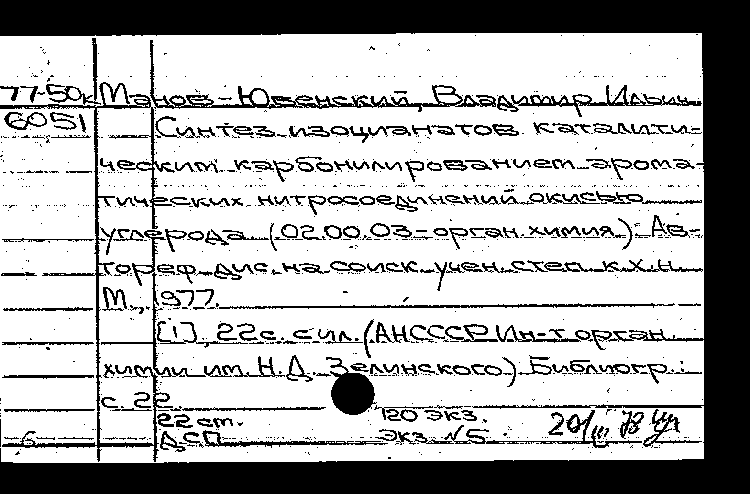 77-50к Манов-Ювенский, Владимир Ильич.
6051 Синтез изоцианатов каталити-
ческим карбонилированием арома-
тических нитросоединений окисью
углерода (02.00.03-орган. химия): Ав-
тореф. дис. на соиск. учен. степ. к.х.н.
М., 1977.
[1], 22с. с ил. (АН СССР Ин-т орган.
химии им. Н.Д. Зелинского) Библиогр.:
с. 22
22 ст. 120 экз.
6 ДСП экз. №5 20/III 78